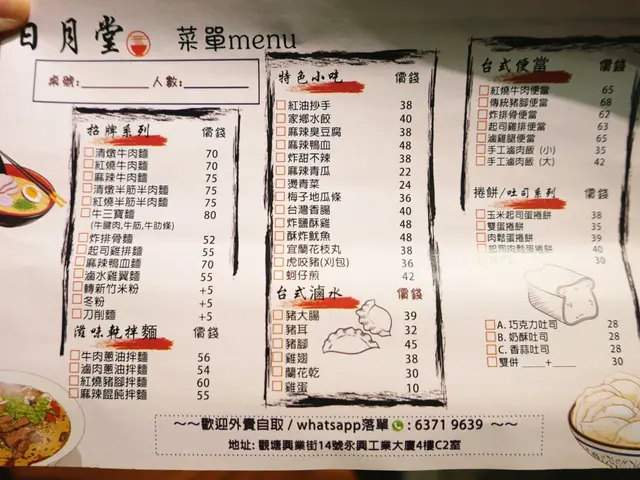 日月堂 菜單menu
桌號: 人數:
招牌系列 價錢
清燉牛肉麵 70
紅燒牛肉麵 70
麻辣牛肉麵 75
清燉半筋半肉麵 75
紅燒半筋半肉麵 75
牛三寶麵 80
(牛腱肉,牛筋,牛肋條)
炸排骨麵 52
起司雞排麵 55
麻辣鴨血麵 70
滷水雞翼麵 55
轉新竹米粉 +5
冬粉 +5
刀削麵 +5
滋味乾拌麵 價錢
牛肉蔥油拌麵 56
滷肉蔥油拌麵 54
紅燒豬腳拌麵 60
麻辣餛飩拌麵 55
特色小吃 價錢
紅油抄手 38
家鄉水餃 40
麻辣臭豆腐 38
麻辣鴨血 48
炸甜不辣 38
麻辣青瓜 22
燙青菜 24
梅子地瓜條 36
台灣香腸 40
炸鹽酥雞 48
酥炸魷魚 48
宜蘭花枝丸 38
虎咬豬(刈包) 36
蚵仔煎 42
台式滷水 價錢
豬大腸 39
豬耳 32
豬腳 45
雞翅 38
蘭花乾 30
雞蛋 10
台式便當 價錢
紅燒牛肉便當 65
傳統豬腳便當 68
炸排骨便當 62
起司雞排便當 63
滷雞腿便當 65
手工滷肉飯 (小) 35
手工滷肉飯 (大) 42
捲餅/吐司系列 價錢
玉米起司蛋捲餅 38
雙蛋捲餅 35
肉鬆蛋捲餅 39
起司肉鬆蛋捲餅 40
30
A. 巧克力吐司 28
B. 奶酥吐司 28
C. 香蒜吐司 28
雙併 ___+___ 30
~~歡迎外賣自取 / whatsapp落單 : 6371 9639 ~~
地址: 觀塘興業街14號永興工業大廈4樓C2室